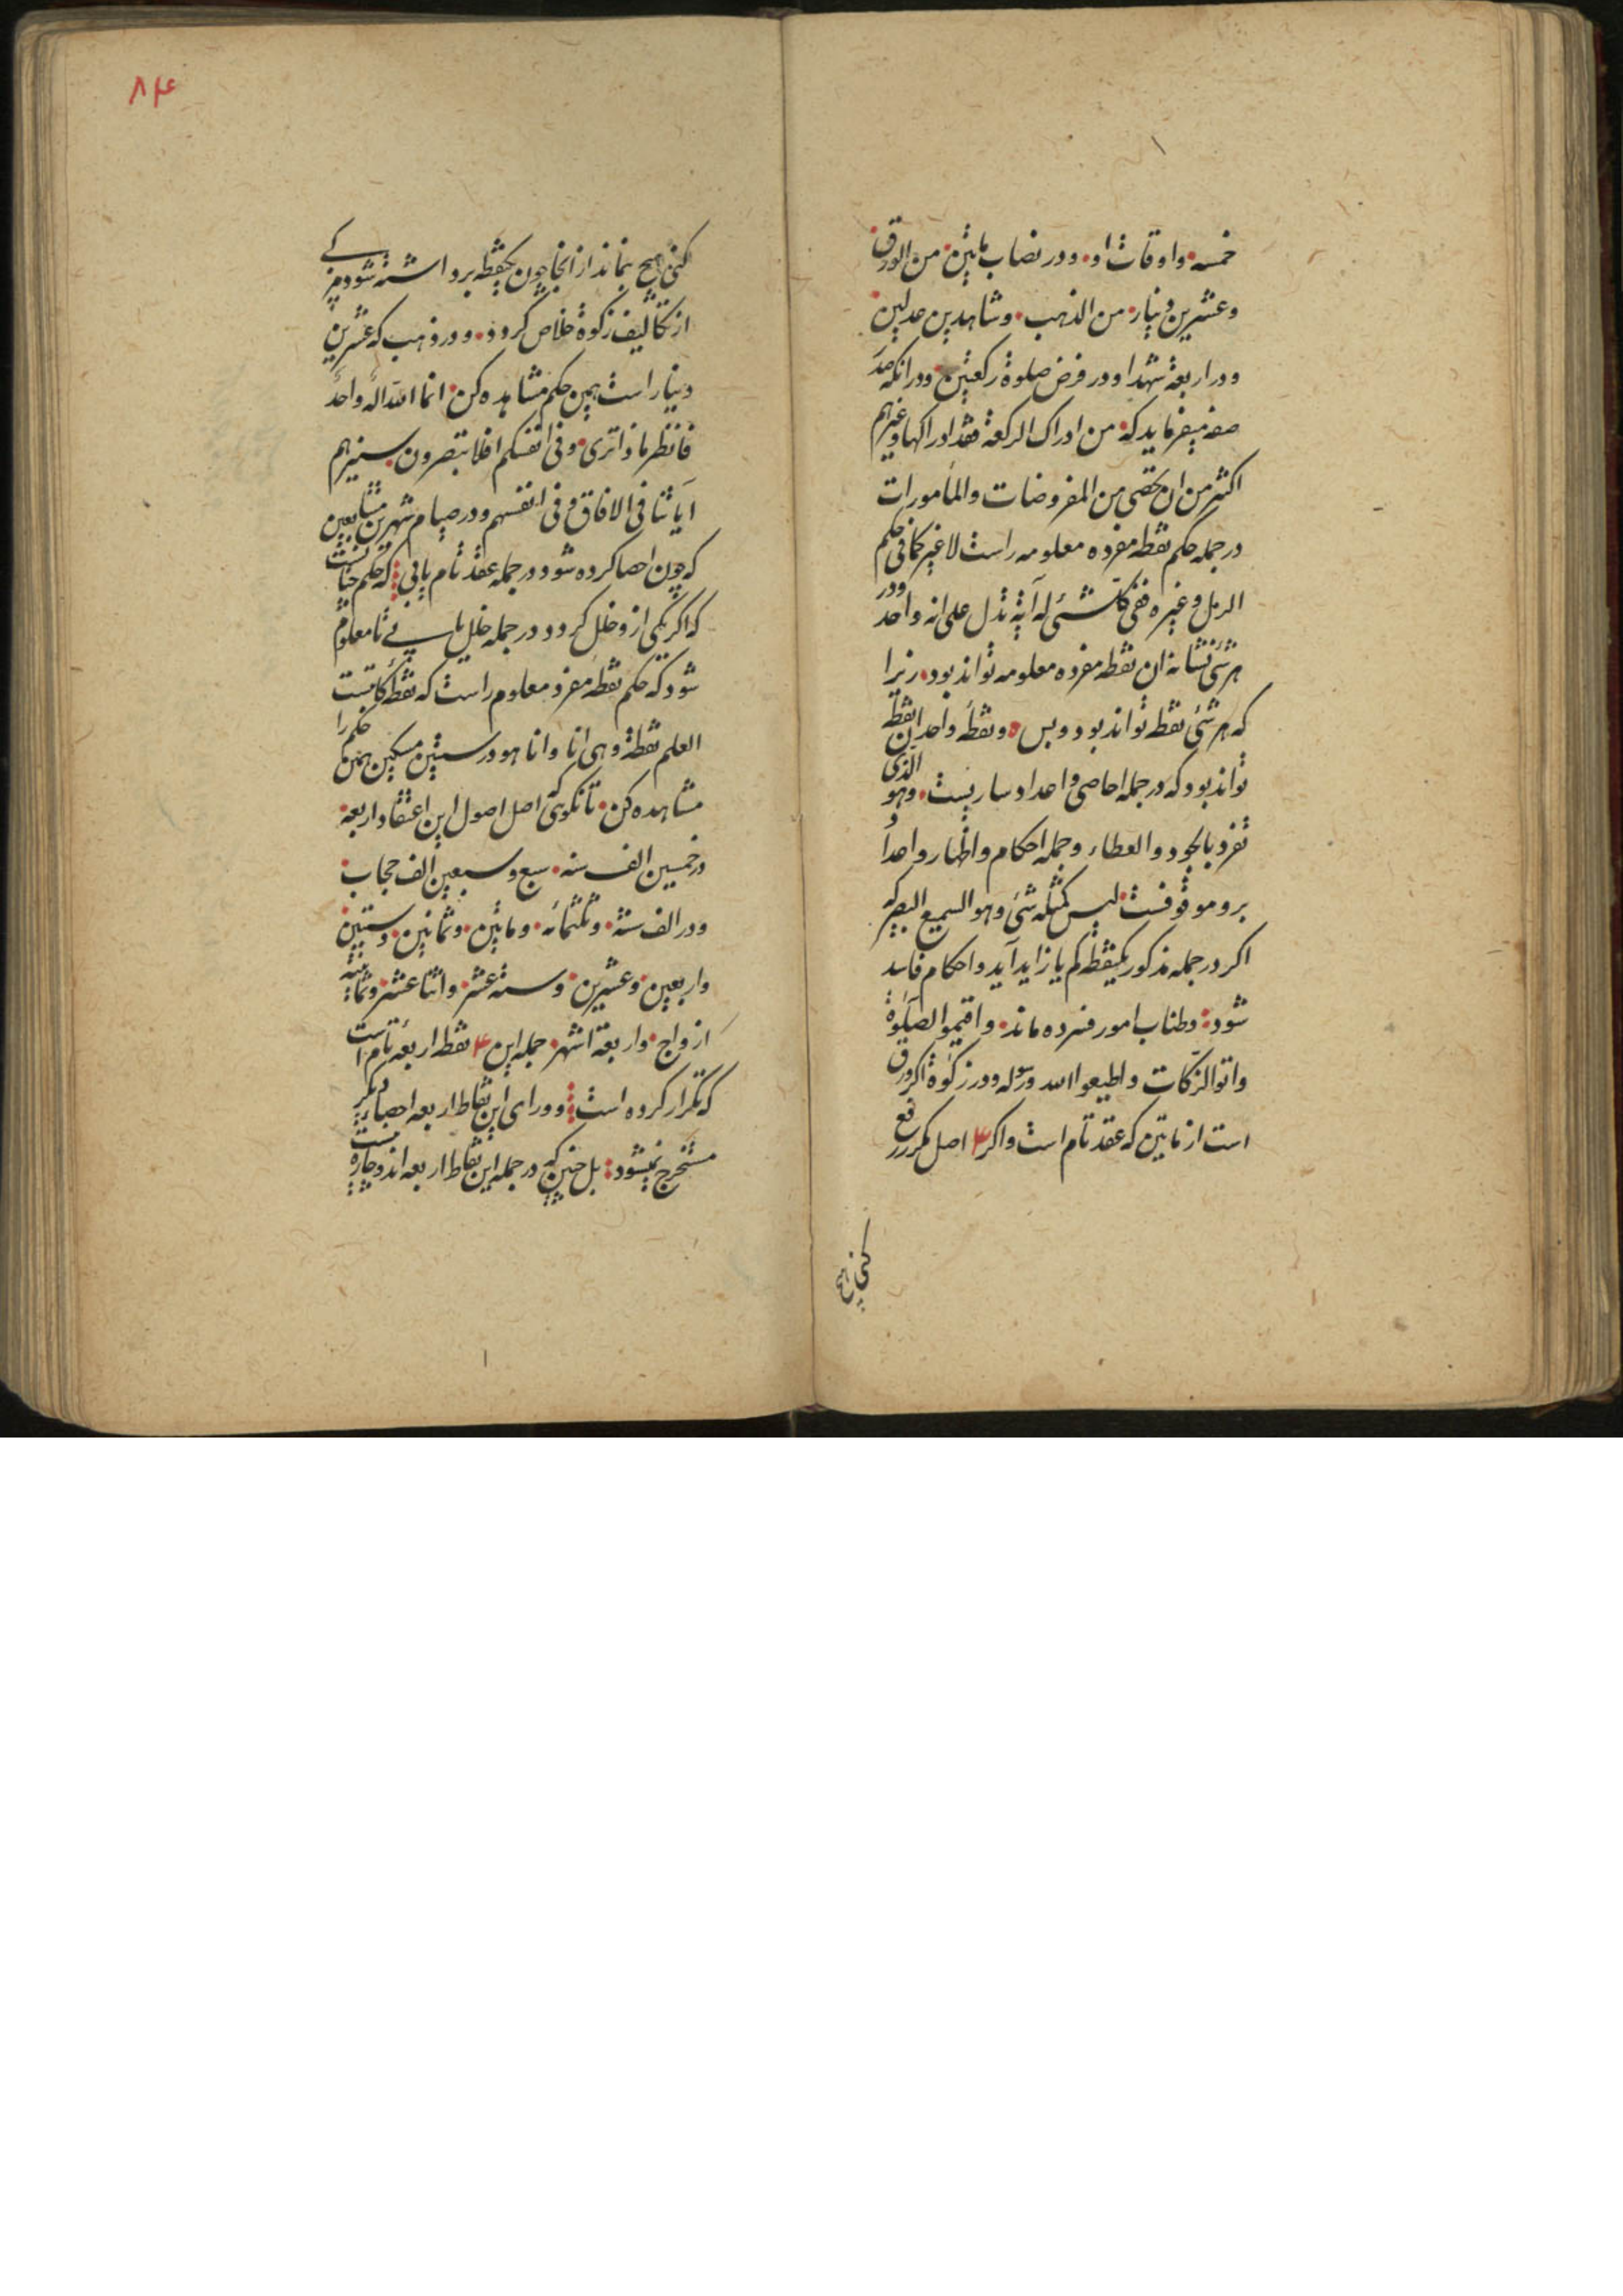 خمسه و اوقات او و در نصاب مأتین من الورق
و عشرین دینار من الذهب و شاهدین عدلین
و در اربعة شهدا و در فرض صلوة رکعتین و در آنکه
میفرماید که من ادراک الرکعة فقد ادراکها و غیرهم
اکثر من ان یحصی من المفروضات والمأمورات
در جمله حکم نقطه مفرده معلومه راست لاغیر کما فی حکم
الرمل و غیره ففی کل شئ له آیة تدل علی انه واحد و در
هر شئ نشانه ان نقطه مفرده معلومه تواند بود زیرا
که هر شئ نقطه تواند بود و بس و نقطه واحد این نقطه
تواند بود که در جمله احاصی و اعداد ساریست و هو الذی
تفرد بالجود والعطاء و جمله احکام و اظهار واحداً
برو موقوفست لیس کمثله شئ و هو السمیع البصیر که
اکر در جمله مذکور یکنقطه کم یا زاید آید و احکام فاسد
شود و طناب امور فسرده ماند و اقیموا الصلوة
واتوالزکات و اطیعوا الله و رسوله و در زکوة اکر ورق
است از مأتین که عقد تام است و اکر ۳ اصل مکرر رفع
کنی هیچ
۸۴
کنی هیچ نماند از انجا چون یکنقطه برداشته شود
از تکالیف زکوة خلاص کردد و در ذهب که عشرین
دینار است همین حکم مشاهده کن انما الله اله واحد
فانظر ماذا تری و فی انفسکم افلا تبصرون سنریهم
آیاتنا فی الافاق و فی انفسهم و در صیام شهرین متتابعین
که چون احصا کرده شود در جمله عقد تام یابی که حکم
که اکر یکی ازو خلل کردد در جمله خلل یابی تا معلوم
شود که حکم نقطه مفرد معلوم راست که نقطه کافیست
العلم نقطة و هی انا و انا هو و در ستین مسکین همین حکم را
مشاهده کن تا نکوئی که اصل اصول این اعتقاد اربعة
در خمسین الف سنه سبع و سبعین الف حجاب
و در الف سنة و ثلثمائه و مأتین و ثمانین و ستین
و اربعین و عشرین و سته عشر و اثنا عشر و ثمانیة
ازواج و اربعة اشهر جمله این ۴ نقطه اربعه تام است
که تکرار کرده است و ورای این نقاط اربعه احصاء دیکر
مستخرج نمیشود بل چنین که در جمله این نقاط اربعه اند و چاره نیست